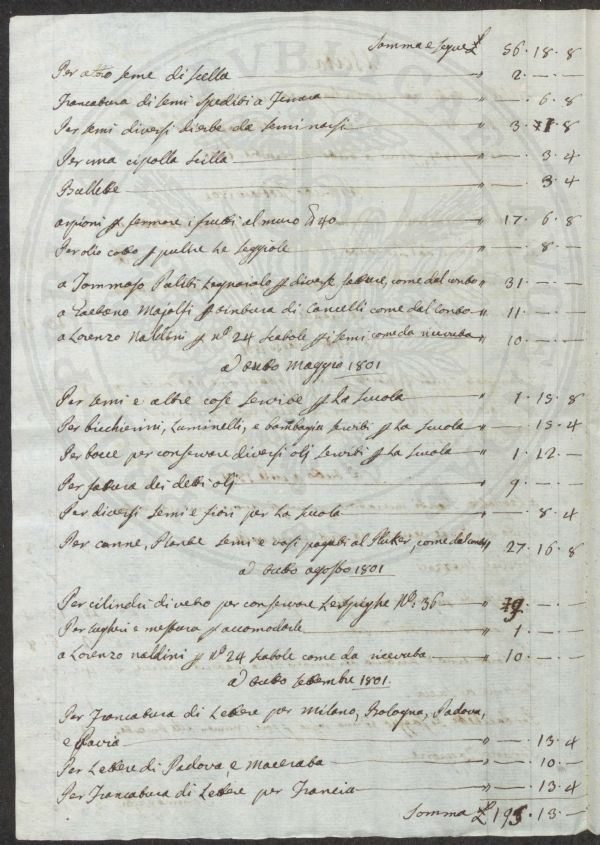 Somma e segue £ 56.18.8
Per altro seme di Scilla " 2.—.—
Francatura di semi spediti a Jenua " —.6.8
Per semi diversi d'erbe da seminarsi " 3.1.8
Per una cipolla scilla " —.3.4
Bullette " —.3.4
arpioni p fermare i frutti al muro 40 " 17.6.8
Per olio cotto p pulire le seggiole " —.8.—
a Tommaso Paliti Legnaiolo p diverse fatture, come dal conto " 31.—.—
a Gaetano Majolfi p tintura di Cancelli come dal Conto " 11.—.—
a Lorenzo Naldini p n.º 24 scatole p i semi come da ricevuta " 10.—.—
a dì tutto Maggio 1801
Per semi e altre cose servite p la Scuola " 1.15.8
Per bicchierini, Luminelli, e bambagia serviti p la Scuola " —.15.4
Per bocce per conservare diversi olj serviti p la Scuola " 1.12.—
Per fattura dei detti olj " 9.—.—
Per diversi semi e fiori per la scuola " —.8.4
Per canne, Piante semi e vasi pagati al Piker, come dal conto " 27.16.8
a dì tutto agosto 1801
Per cilindri di vetro per conservare le spighe Nº: 36 " 9.—.—
Per sugheri e mestura p accomodarle " 1.—.—
a Lorenzo naldini p nº 24 scatole come da ricevuta " 10.—.—
a dì tutto Settembre 1801
Per Francatura di Lettere per Milano, Bologna, Padova,
e Pavia " —.13.4
Per Lettere di Padova, e Macerata " —.10.—
Per Francatura di Lettere per Francia " —.13.4
Somma £ 195.13.—